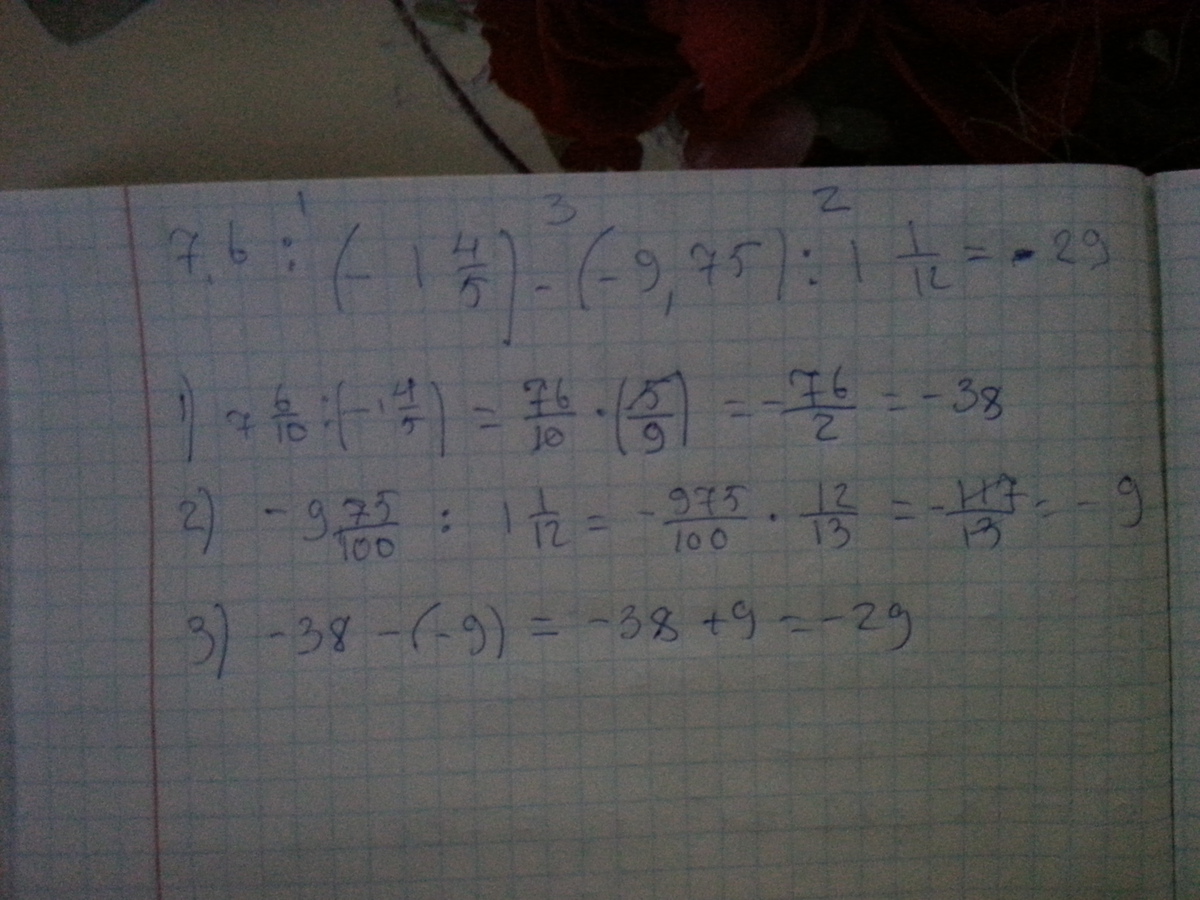 1 3 2
7,6 : (- 1 4/5) - (-9,75) : 1 1/12 = - 29
1) 7 6/10 : (-1 4/5) = 76/10 · (5/9) = - 76/2 = -38
2) - 9 75/100 : 1 1/12 = - 975/100 · 12/13 = - 117/13 = - 9
3) -38 - (-9) = -38 + 9 = -29